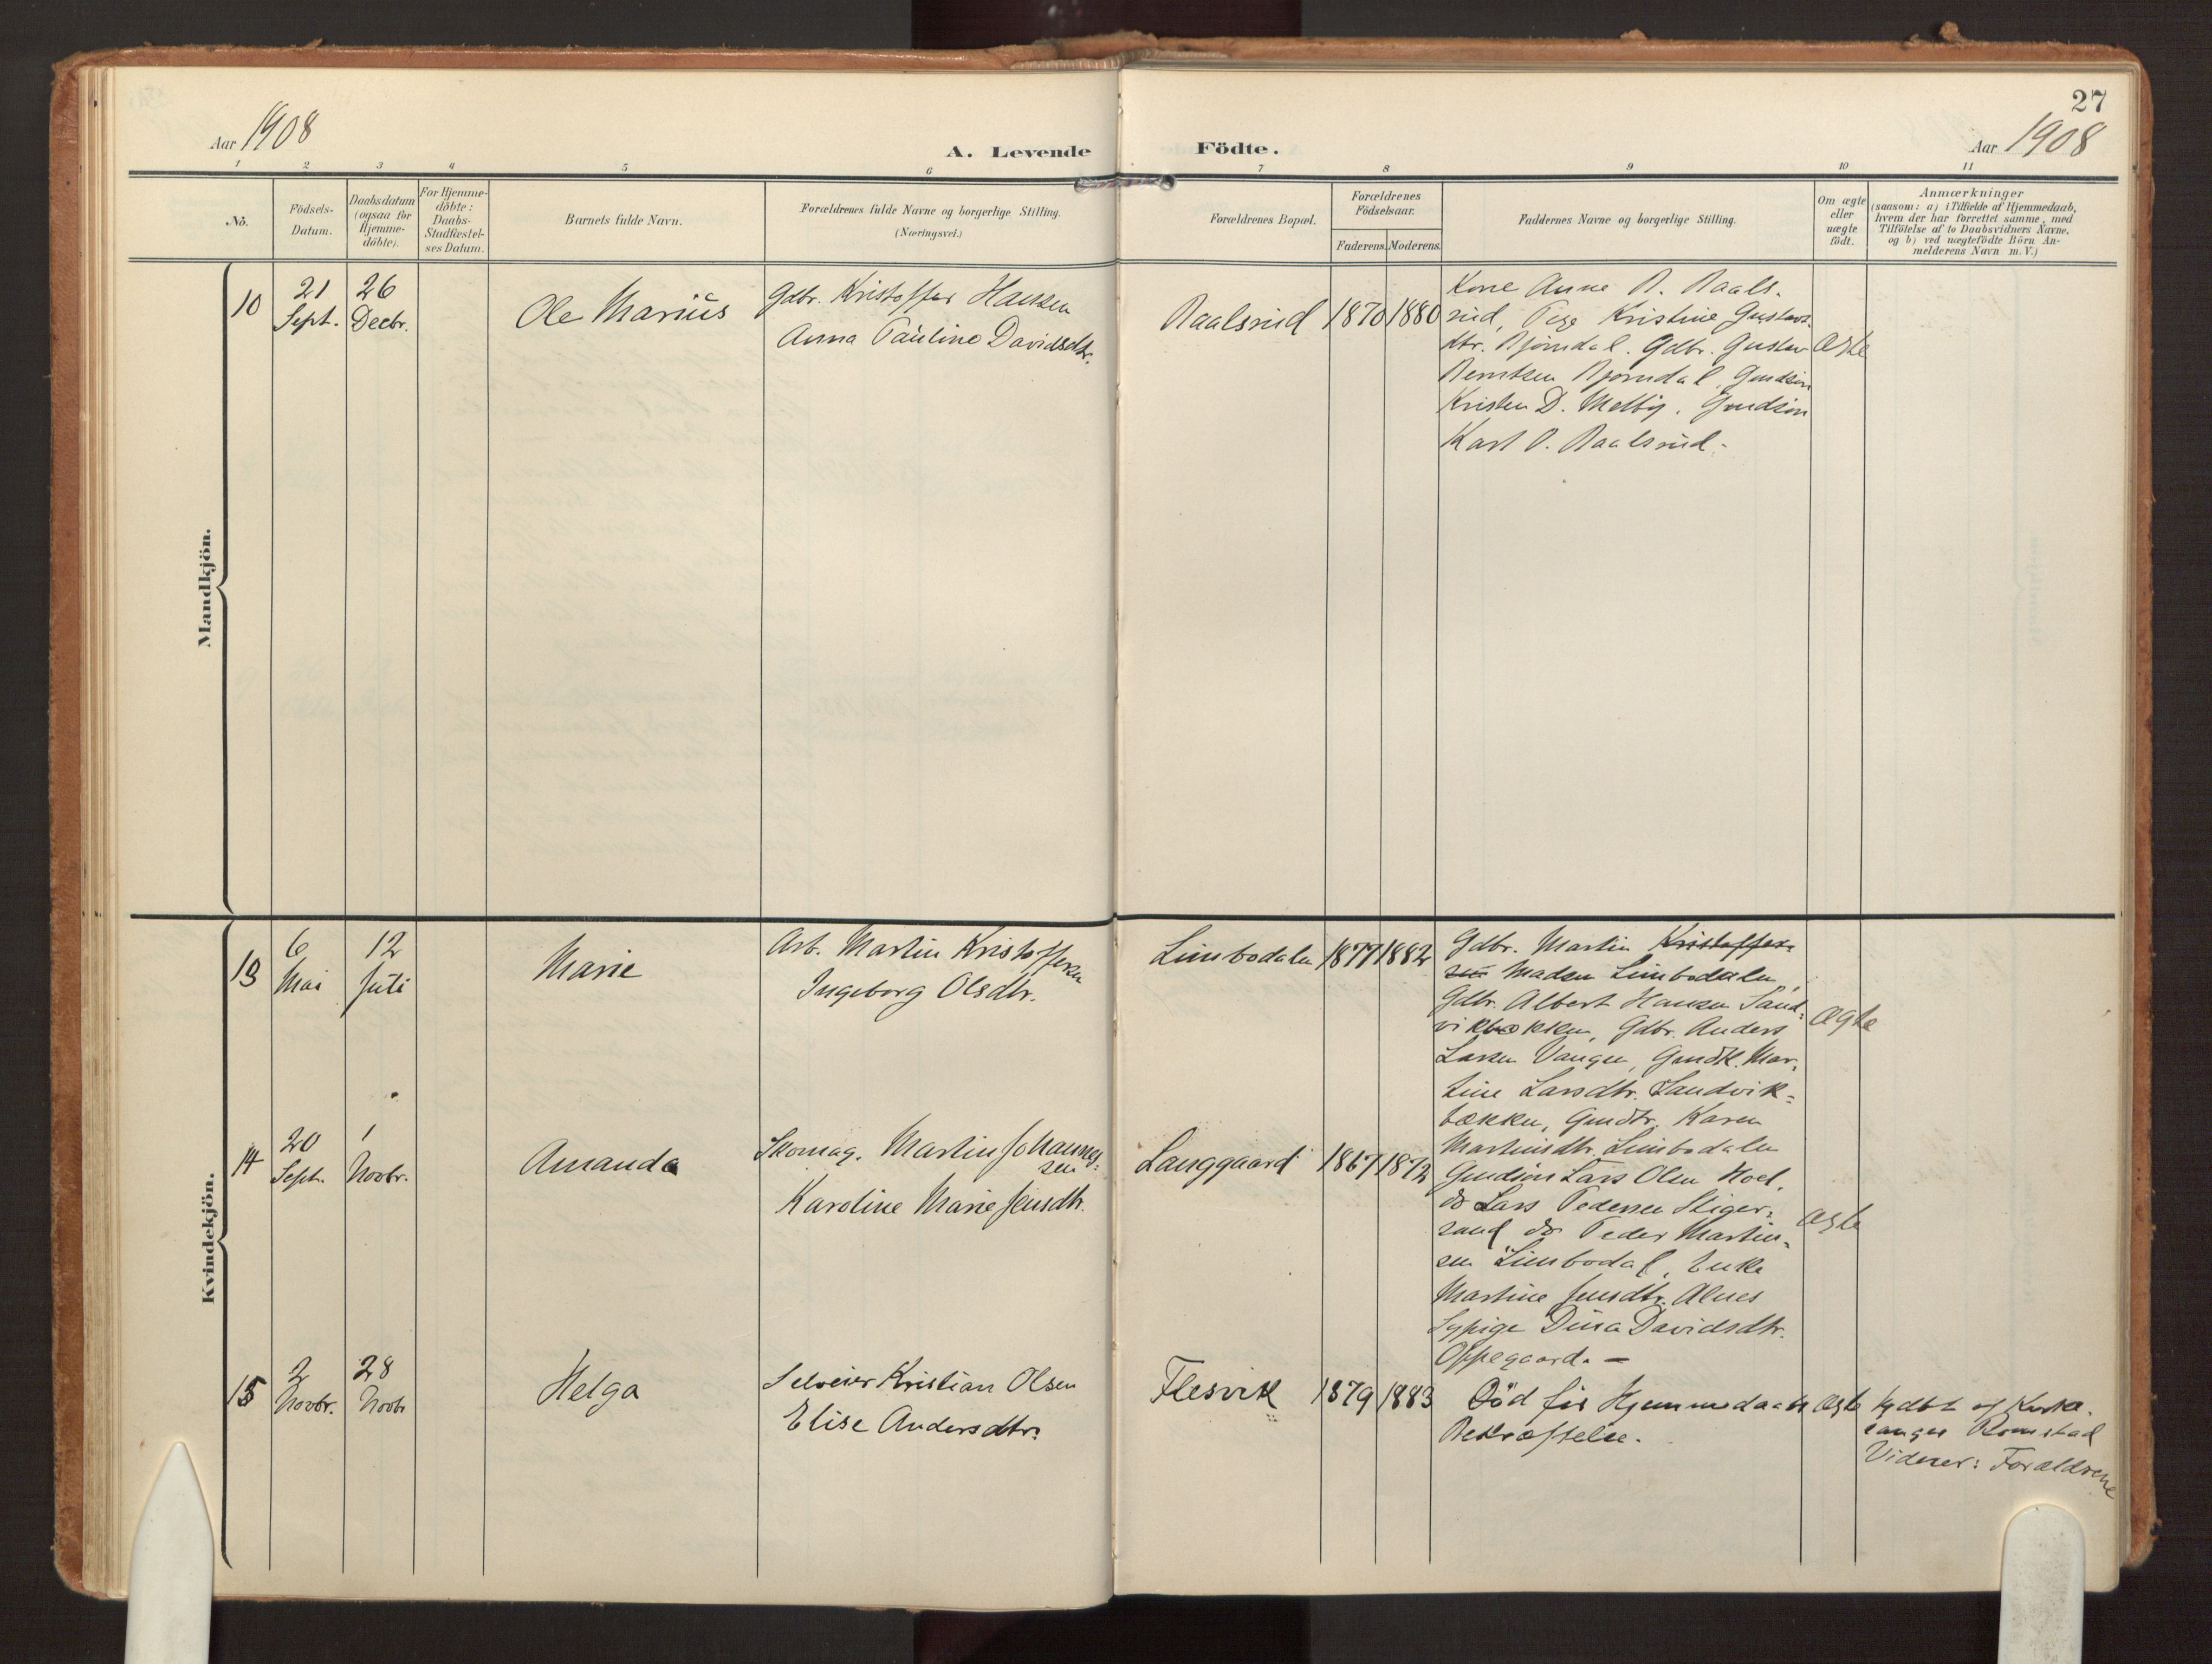 27
Aar 1908
A. Levende Födte.
Aar 1908
1 2 3 4 5 6 7 8 9 10 11
No.
Födsels-
Datum.
Daabsdatum
(ogsaa for
Hjemme-
döbte).
For Hjemme-
döbte:
Daabs-
Stadfæstel-
ses Datum.
Barnets fulde Navn.
Forældrenes fulde Navne og borgerlige Stilling.
(Næringsvei.)
Forældrenes Bopæl.
Forældrenes
Födselsaar.
Faderens. Moderens.
Faddernes Navne og borgerlige Stilling.
Om ægte
eller
uægte
födt.
Anmærkninger
(saasom: a) i Tilfælde af Hjemmedaab,
hvem der har forrettet samme, med
Tilföielse af to Daabsvidners Navne,
og b) ved uægtefödte Börn An-
melderens Navn m. V.)
Mandkjön.
10
21
Sept.
26
Decbr.
Ole Marius
Gdbr. Kristoffer Hansen
Anna Pauline Davidsdtr.
Raalsrud
1870
1880
Kone Anne R. Raals-
rud, Pige Kristine Gustavs-
dtr. Bjørndal. Gdbr. Gustav
Berntsen Bjørndal, Gmdsøn
Kristen D. Melby. Gmdsøn
Karl O. Raalsrud-
Ægte
Kvindekjön.
13
6
Mai
12
Juli
Marie
Arb. Martin Kristoffersen
Ingeborg Olsdtr.
Limbodalen
1877
1882
Gdbr. Martin Kristoffer-
sen Madsen Limbodalen,
Gdbr. Albert Hansen Sand-
vikbækken, Gdbr. Anders
Larsen Vangen, Gmdk. Mar-
tine Larsdtr. Sandvik-
bækken, Gmdtr. Karen
Martinsdtr. Limbodalen
Ægte
14
20
Sept.
1
Novbr.
Amanda
Skomag. Martin Johannes-
sen
Karoline Marie Jensdtr.
Langgaard
1867
1872
Gmdsøn Lars Olsen Hoel,
do Lars Pedersen Stiger-
sand do Peder Martin-
sen Limbodal, Enke
Martine Jensdtr. Alnes
Sypige Dina Davidsdtr.
Oppegaard. —
Ægte
15
2
Novbr.
28
Novbr
Helga
Selveier Kristian Olsen
Elise Andersdtr.
Flesvik
1879
1883
Död før Hjemmedaabs
Bekræftelse.
Ægte
Hjdbt af Kirke-
sanger Romstad
Vidner: Forældrene